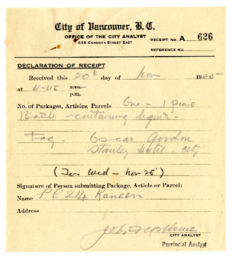 City of Vancouver, B.C.
OFFICE OF THE CITY ANALYST
RECEIPT NO. A 626
236 CORDOVA STREET EAST
REFERENCE NO.
DECLARATION OF RECEIPT
Received this 20th day of Nov 1935
at 4:45
No. of Packages, Articles, Parcels One - 1
Bottle containing liquid.
Tag. Oscar Gordon
Stanley Hotel - City
(Due Wed - Nov 25)
Signature of Person submitting Package, Article or Parcel:
Name P C 214
Address
CITY ANALYST
Provincial Analyst